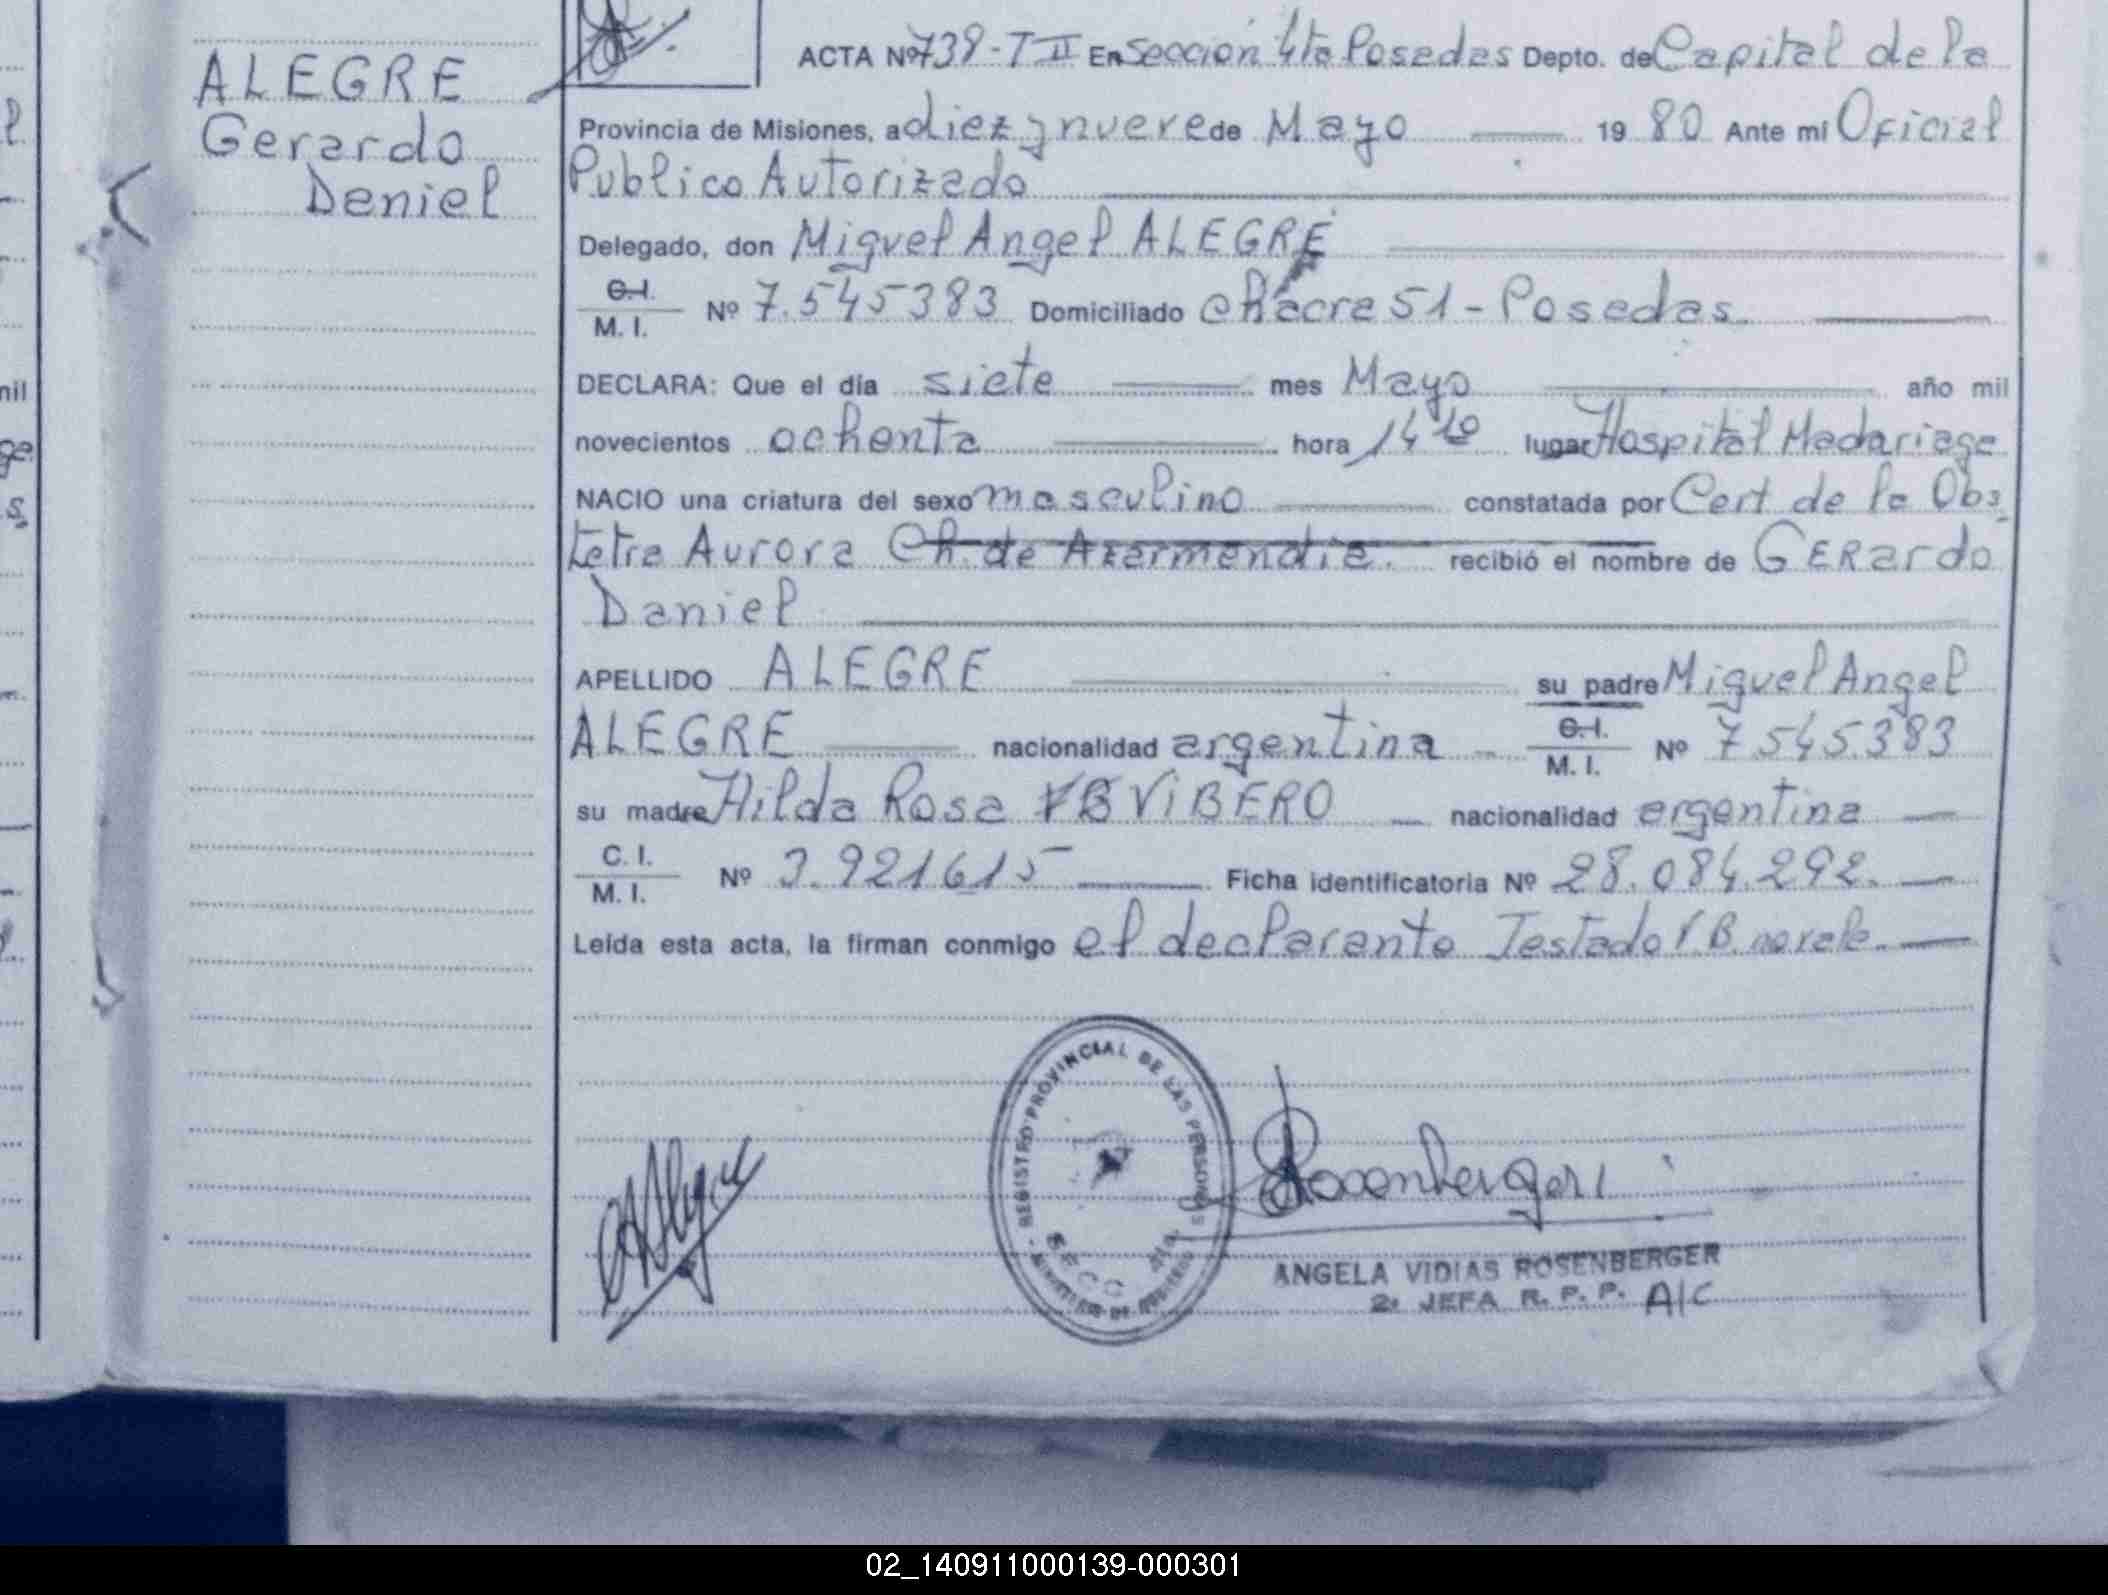 ALEGRE
Gerardo
Daniel
ACTA Nº 739-T II En Sección 4ta Posadas Depto. de Capital de la
Provincia de Misiones, a diez y nueve de Mayo 19 80 Ante mí Oficial
Publico Autorizado
Delegado, don Miguel Angel ALEGRE
C.I. M. I. Nº 7.545383 Domiciliado Chacra 51 - Posadas.
DECLARA: Que el día siete mes Mayo año mil
novecientos ochenta hora 14 10 lugar Hospital Madariaga
NACIO una criatura del sexo masculino constatada por Cert de la Obs
tetra Aurora Ch. de Azarmendia. recibió el nombre de GERardo
Daniel
APELLIDO ALEGRE su padre Miguel Angel
ALEGRE nacionalidad argentina C.I. M. I. Nº 7545.383
su madre Hilda Rosa VB VIBERO nacionalidad argentina
C. I. M. I. Nº 3.921615 Ficha identificatoria Nº 28.084.292.
Leída esta acta, la firman conmigo el declarante Testado VB. no vale.
REGISTRO PROVINCIAL DE LAS PERSONAS
SECC 4ta
ANGELA VIDIAS ROSENBERGER
2ª JEFA R. P. P. A/C
nil
02_140911000139-000301